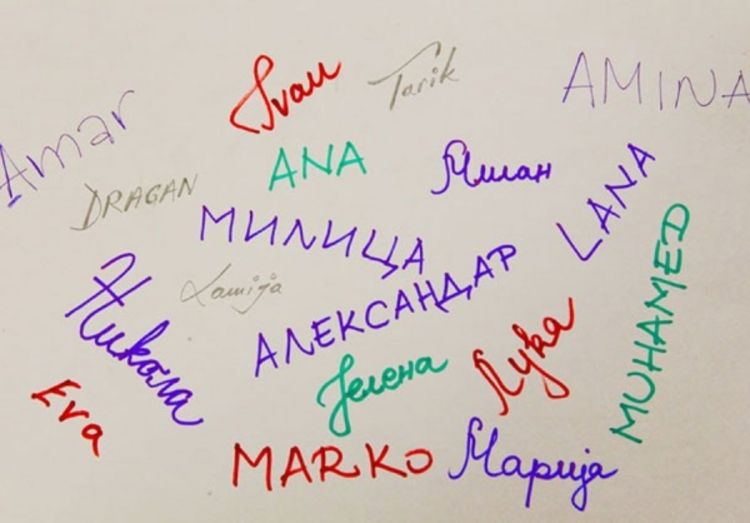 Ivan
Tarik
AMINA
Amar
ANA
Милан
DRAGAN
LANA
МИЛИЦА
Lamija
АЛЕКСАНДАР
MUHAMED
Никола
Јелена
Лука
Eva
MARKO
Марија